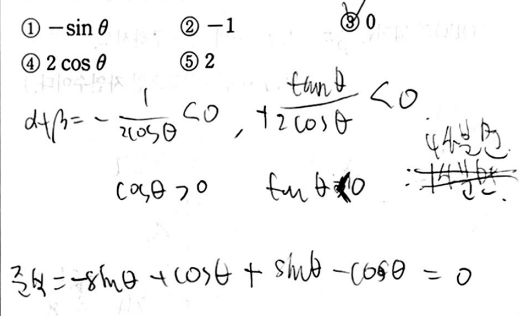 ① -sin θ ② -1 ③ 0
④ 2 cos θ ⑤ 2
α+β = - 1/2cosθ < 0 , + tanθ/2cosθ < 0
cosθ > 0 tanθ < 0 4사분면
준식 = -sinθ + cosθ + sinθ - cosθ = 0